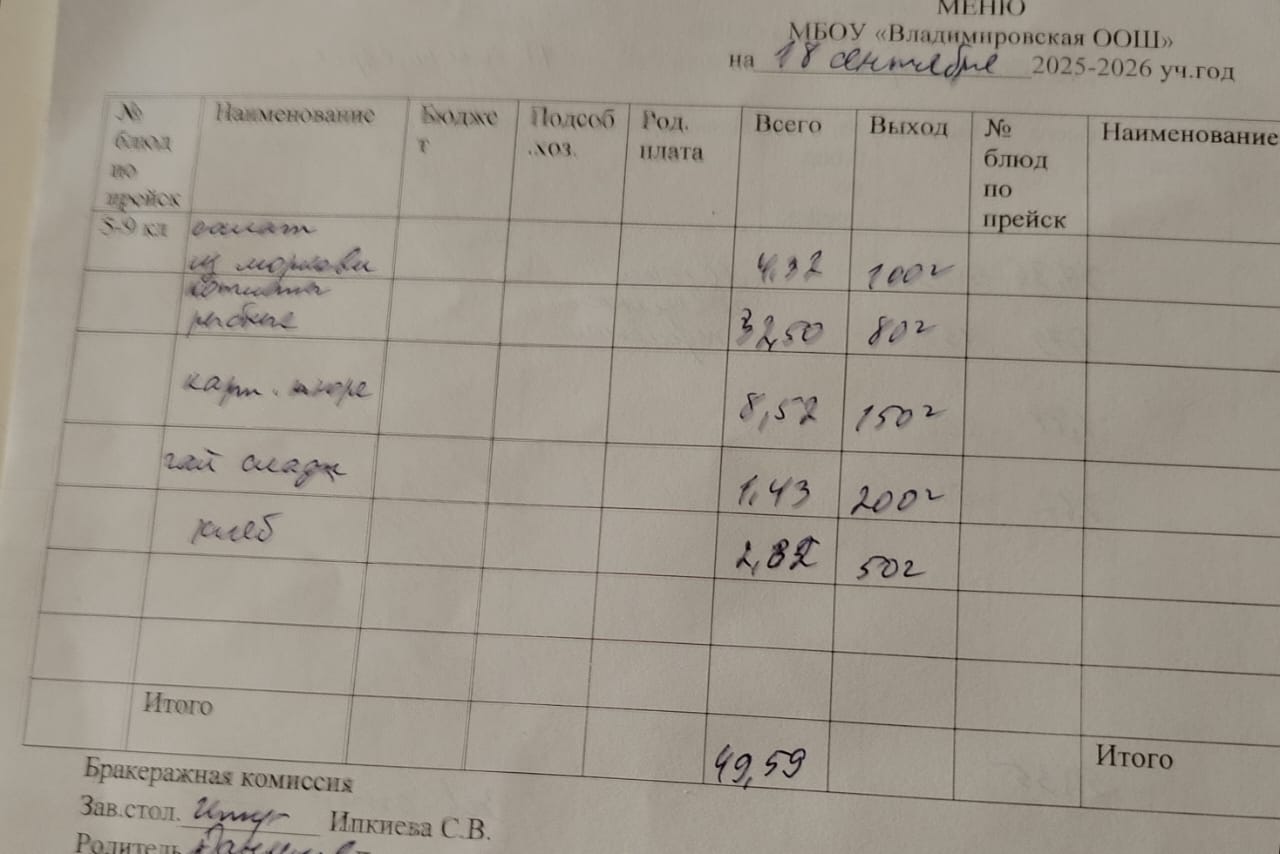 МЕНЮ
МБОУ «Владимировская ООШ»
на 18 сентября 2025-2026 уч.год
№ блюд по прейск Наименование Бюджет Подсоб.хоз. Род. плата Всего Выход № блюд по прейск Наименование
5-9 кл салат
из моркови 4,32 100г
котлета
рыбные 32,50 80г
карт. пюре 8,52 150г
чай сладк 1,43 200г
хлеб 2,82 50г
Итого 49,59 Итого
Бракеражная комиссия
Зав.стол. Ипкиева С.В.
Родитель